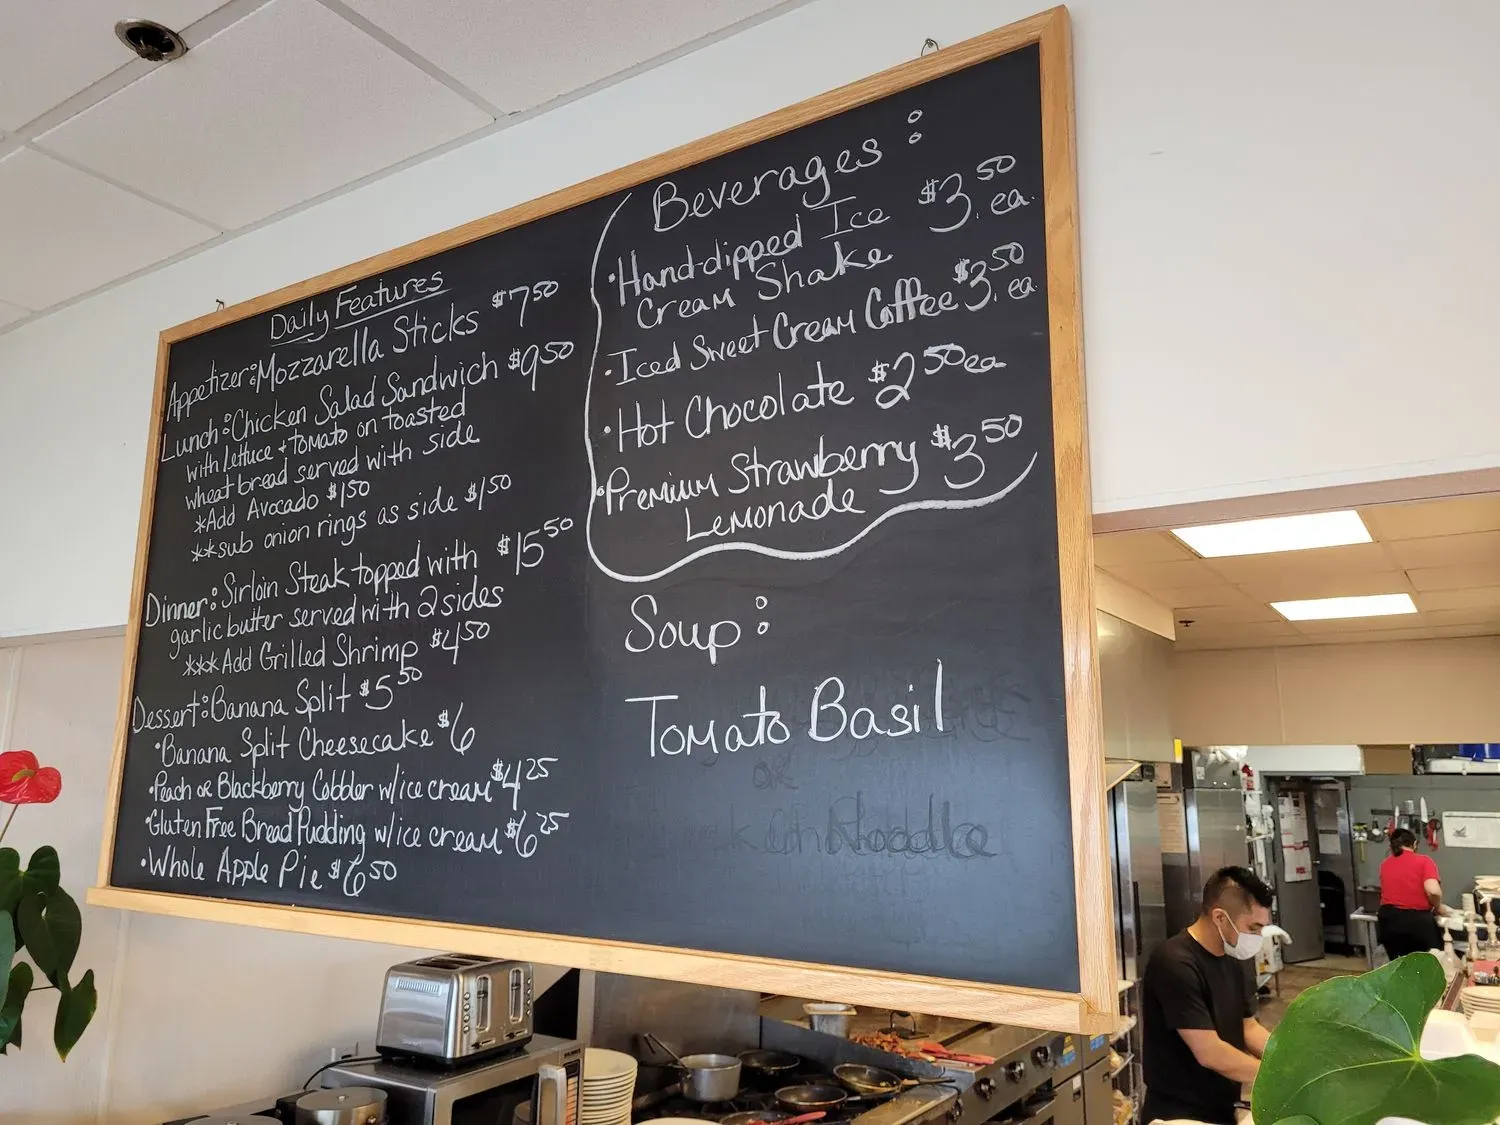 Daily Features
Appetizer: Mozzarella Sticks $7.50
Lunch: Chicken Salad Sandwich $9.50
with lettuce + tomato on toasted
wheat bread served with side
*Add Avocado $1.50
**sub onion rings as side $1.50
Dinner: Sirloin Steak topped with $15.50
garlic butter served with 2 sides
***Add Grilled Shrimp $4.50
Dessert: Banana Split $5.50
•Banana Split Cheesecake $6
•Peach or Blackberry Cobbler w/ice cream $4.25
•Gluten Free Bread Pudding w/ice cream $6.25
•Whole Apple Pie $6.50
Beverages:
•Hand-dipped Ice $3.50 ea.
Cream Shake
•Iced Sweet Cream Coffee $3.50 ea.
•Hot Chocolate $2.50 ea
•Premium Strawberry $3.50
Lemonade
Soup:
Tomato Basil
or
Noodle